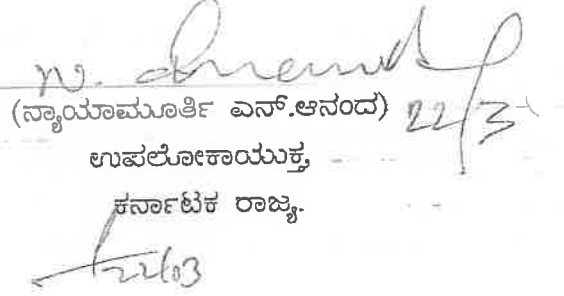 N. Anand
(ನ್ಯಾಯಾಮೂರ್ತಿ ಎನ್.ಆನಂದ) 22/3
ಉಪಲೋಕಾಯುಕ್ತ,
ಕರ್ನಾಟಕ ರಾಜ್ಯ.
22/03